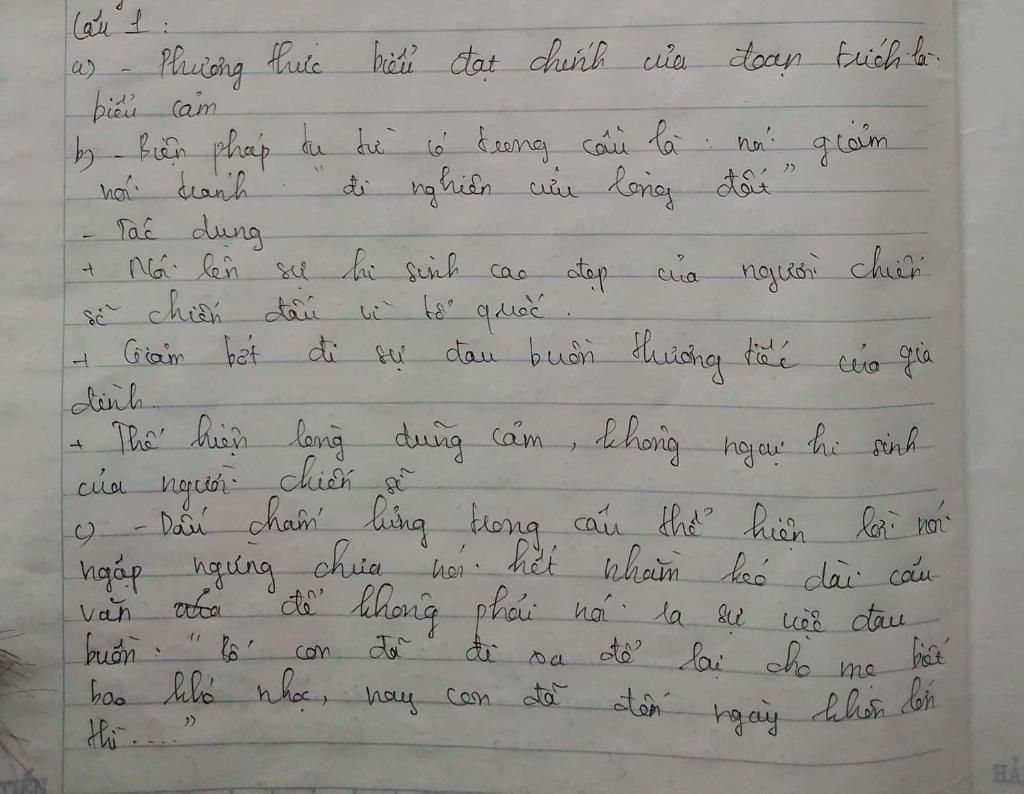 Câu 1 :
a) - Phương thức biểu đạt chính của đoạn trích là
biểu cảm
b) - Biện pháp tu từ có trong câu là : nói giảm
nói tránh : "đi nghiên cứu lòng đất"
- Tác dụng
+ Nói lên sự hi sinh cao đẹp của người chiến
sĩ chiến đấu vì tổ quốc .
+ Giảm bớt đi sự đau buồn thương tiếc của gia
đình
+ Thể hiện lòng dũng cảm , không ngại hi sinh
của người chiến sĩ
c) - Dấu chấm lửng trong câu thể hiện lời nói
ngập ngừng chưa nói hết nhằm kéo dài câu
văn để không phải nói ra sự đau
buồn : " Bố con đã đi xa để lại cho mẹ biết
bao khó nhọc, nay con đã đến ngày khôn lớn
thì ....."
TIẾN
HẢ